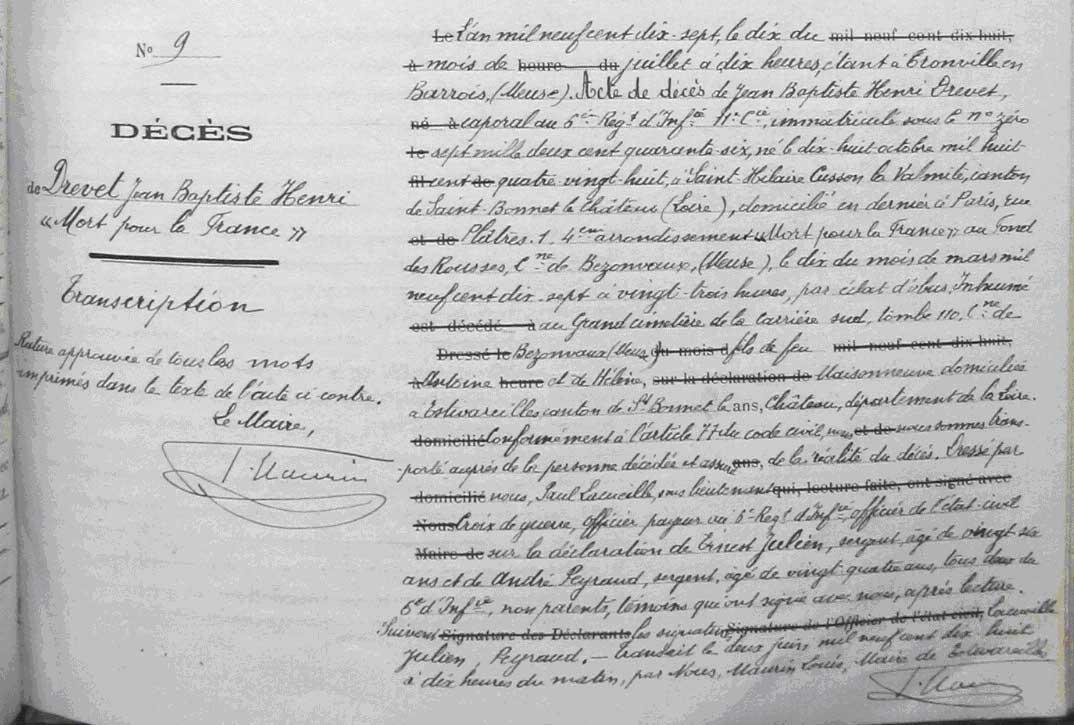 N° 9
DÉCÈS
de Drevet Jean Baptiste Henri
"Mort pour la France"
Transcription
Rature approuvée de tous les mots
imprimés dans le texte de l'acte ci contre.
Le Maire,
L. Maurin
Le L'an mil neuf cent dix-sept, le dix du mil neuf cent dix huit,
à mois de heure du juillet à dix heures, étant à Tronville en
Barrois, (Meuse). Acte de décès de Jean Baptiste Henri Drevet,
né à caporal au 6e Regt d'Infie 11e Cie, immatriculé sous le no zéro
le sept mille deux cent quarante-six, né le dix-huit octobre mil huit
fil cent de quatre-vingt-huit, à Saint-Hilaire Cusson la Valmite, canton
de Saint-Bonnet le Château (Loire), domicilié en dernier à Paris, rue
et de Plâtres. 1. 4em arrondissement "Mort pour la France" au Fond
des Rousses, Cne de Bezonvaux, (Meuse), le dix du mois de mars mil
neuf cent dix-sept à vingt-trois heures, par éclat d'obus. Inhumé
est décédé à au Grand cimetière de la Carrière sud, tombe 110. Cne de
Dressé le Bezonvaux (Meuse) du mois d fils de feu mil neuf cent dix huit,
à Antoine heure et de Hélène, sur la déclaration de Maisonneuve domiciliés
à Estivareilles canton de St Bonnet le ans, Château, département de la Loire.
domicilié Conformément à l'article 77 du code civil, nous et de nous sommes trans-
porté auprès de la personne décédée et assuré ans, de la réalité du décès. Dressé par
domicilié nous, Paul Lacueille, sous lieutenant qui, lecture faite, ont signé avec
Nous Croix de guerre, officier payeur au 6e Regt d'Infie, officier de l'état-civil
Maire de sur la déclaration de Ernest Julien, sergent, âgé de vingt-six
ans et de André Peyraud, sergent, âgé de vingt-quatre ans, tous deux du
6e d'Infie, non parents, témoins qui ont signé avec nous, après lecture.
Suivent Signature des Déclarants les signatures Signature de l'Officier de l'état civil, Lacueille
Julien, Peyraud. - Transcrit le deux juin mil neuf cent dix-huit
à dix heures du matin, par Nous, Maurin Louis, Maire de Estivareilles
L. Maurin